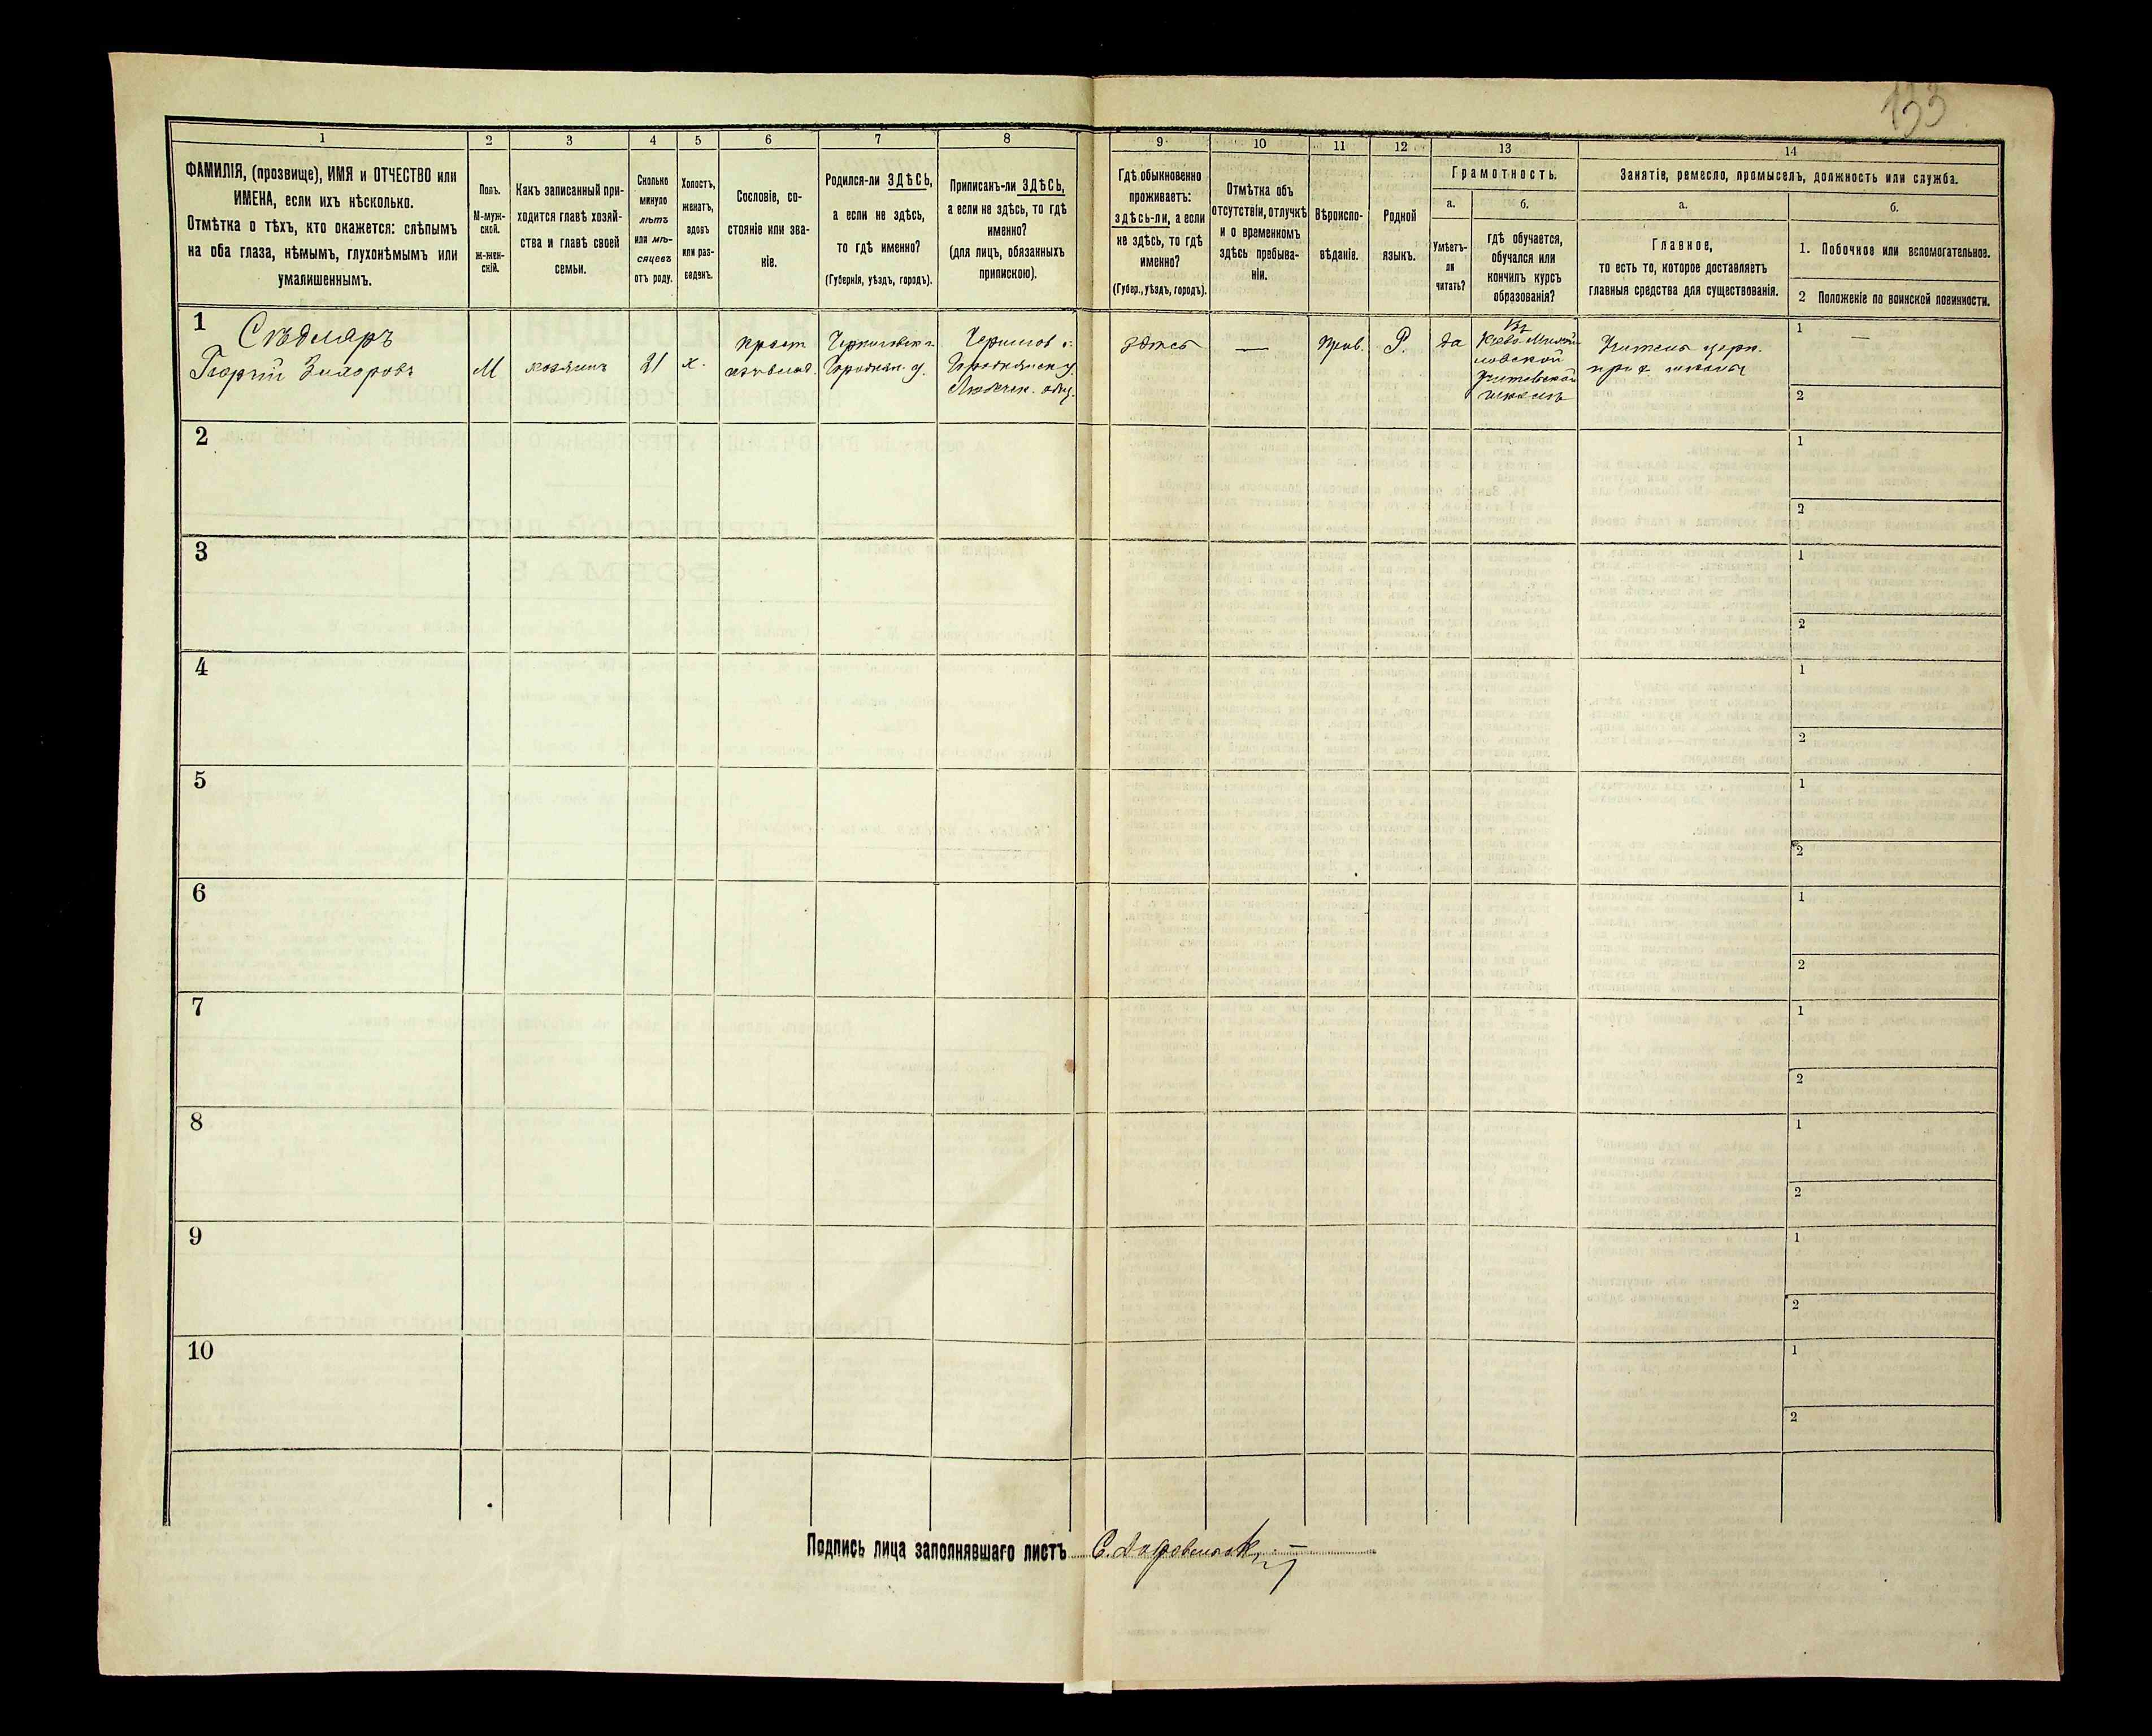 133
1
2
3
4
5
6
7
8
9
10
11
12
13
14
ФАМИЛІЯ, (прозвище), ИМЯ и ОТЧЕСТВО или
ИМЕНА, если ихъ нѣсколько.
Отмѣтка о тѣхъ, кто окажется: слѣпымъ
на оба глаза, нѣмымъ, глухонѣмымъ или
умалишеннымъ.
Полъ.
М-муж-
ской.
ж-жен-
скій.
Какъ записанный при-
ходится главѣ хозяй-
ства и главѣ своей
семьи.
Сколько
минуло
лѣтъ
или мѣ-
сяцевъ
отъ роду.
Холостъ,
женатъ,
вдовъ
или раз-
веденъ.
Сословіе, со-
стояніе или зва-
ніе.
Родился-ли ЗДѢСЬ,
а если не здѣсь,
то гдѣ именно?
(Губернія, уѣздъ, городъ).
Приписанъ-ли ЗДѢСЬ,
а если не здѣсь, то гдѣ
именно?
(для лицъ, обязанныхъ
припискою).
Гдѣ обыкновенно
проживаетъ:
здѣсь-ли, а если
не здѣсь, то гдѣ
именно?
(Губер., уѣздъ, городъ).
Отмѣтка объ
отсутствіи, отлучкѣ
и о временномъ
здѣсь пребыва-
ніи.
Вѣроиспо-
вѣданіе.
Родной
языкъ.
Грамотность.
а.
Умѣетъ-
ли
читать?
б.
гдѣ обучается,
обучался или
кончилъ курсъ
образованія?
Занятіе, ремесло, промыселъ, должность или служба.
а.
Главное,
то есть то, которое доставляетъ
главныя средства для существованія.
б.
1. Побочное или вспомогательное.
2 Положеніе по воинской повинности.
1
Георгій Захаровъ
М
хозяинъ
21
х.
крест
Черниговск. г.
Городнян. у.
Чернигов г.
Городнянск у.
здѣсь
—
Прав.
Р.
да
Въ
школѣ
Учитель церк.
прих школы
1 —
2
2
1
2
3
1
2
4
1
2
5
1
2
6
1
2
7
1
2
8
1
2
9
1
2
10
1
2
Подпись лица заполнявшаго листъ